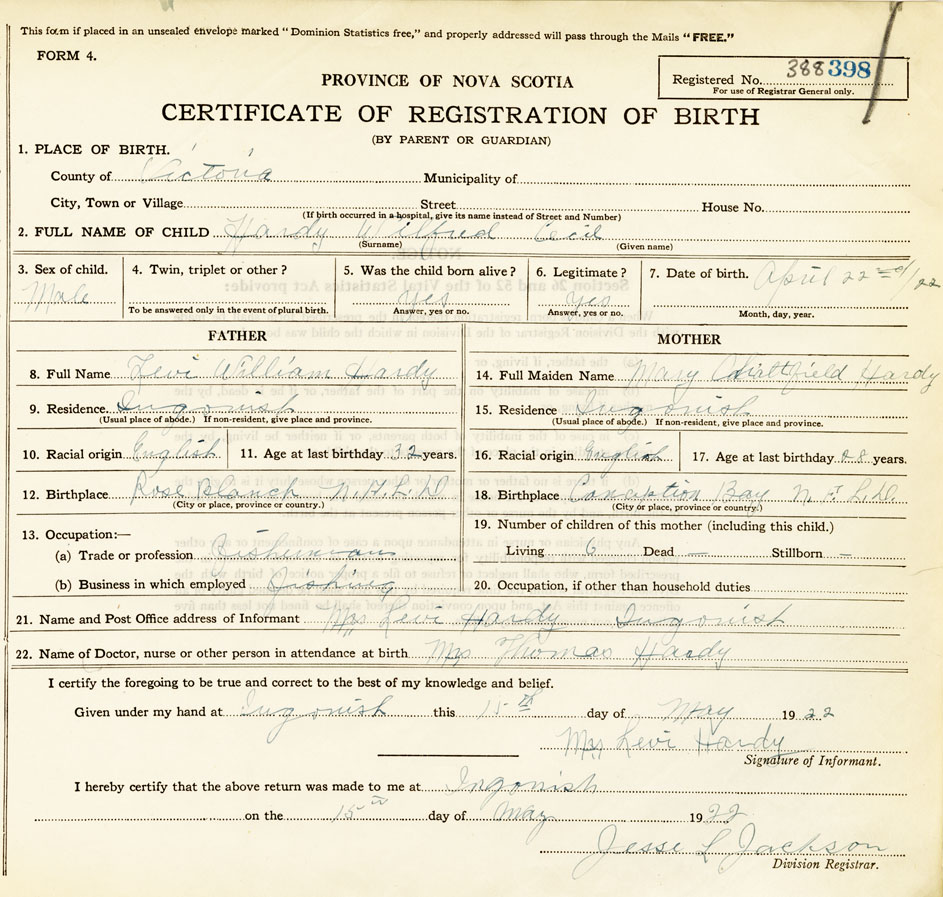 This form if placed in an unsealed envelope marked “Dominion Statistics free,” and properly addressed will pass through the Mails “FREE.”
FORM 4.
Registered No. 388 398
For use of Registrar General only.
PROVINCE OF NOVA SCOTIA
CERTIFICATE OF REGISTRATION OF BIRTH
(BY PARENT OR GUARDIAN)
1. PLACE OF BIRTH.
County of Victoria Municipality of
City, Town or Village Street House No.
(If birth occurred in a hospital, give its name instead of Street and Number)
2. FULL NAME OF CHILD Hardy Wilfred Cecil
(Surname) (Given name)
3. Sex of child. 4. Twin, triplet or other? 5. Was the child born alive? 6. Legitimate? 7. Date of birth. April 22nd /22
Male yes yes
To be answered only in the event of plural birth. Answer, yes or no. Answer, yes or no. Month, day, year.
FATHER MOTHER
8. Full Name Levi William Hardy 14. Full Maiden Name Mary Hardy
9. Residence Ingonish 15. Residence Ingonish
(Usual place of abode.) If non-resident, give place and province. (Usual place of abode.) If non-resident, give place and province.
10. Racial origin English 11. Age at last birthday 32 years. 16. Racial origin English 17. Age at last birthday 28 years.
12. Birthplace Rose Blanch 18. Birthplace Conception Bay
(City or place, province or country.) (City or place, province or country.)
13. Occupation:— 19. Number of children of this mother (including this child.)
(a) Trade or profession Fisherman Living 6 Dead — Stillborn —
(b) Business in which employed Fishing 20. Occupation, if other than household duties
21. Name and Post Office address of Informant Mrs Levi Hardy Ingonish
22. Name of Doctor, nurse or other person in attendance at birth Mrs Thomas Hardy
I certify the foregoing to be true and correct to the best of my knowledge and belief.
Given under my hand at Ingonish this 15th day of May 1922
Mrs Levi Hardy
Signature of Informant.
I hereby certify that the above return was made to me at Ingonish
on the 15th day of May 1922
Jesse L Jackson
Division Registrar.